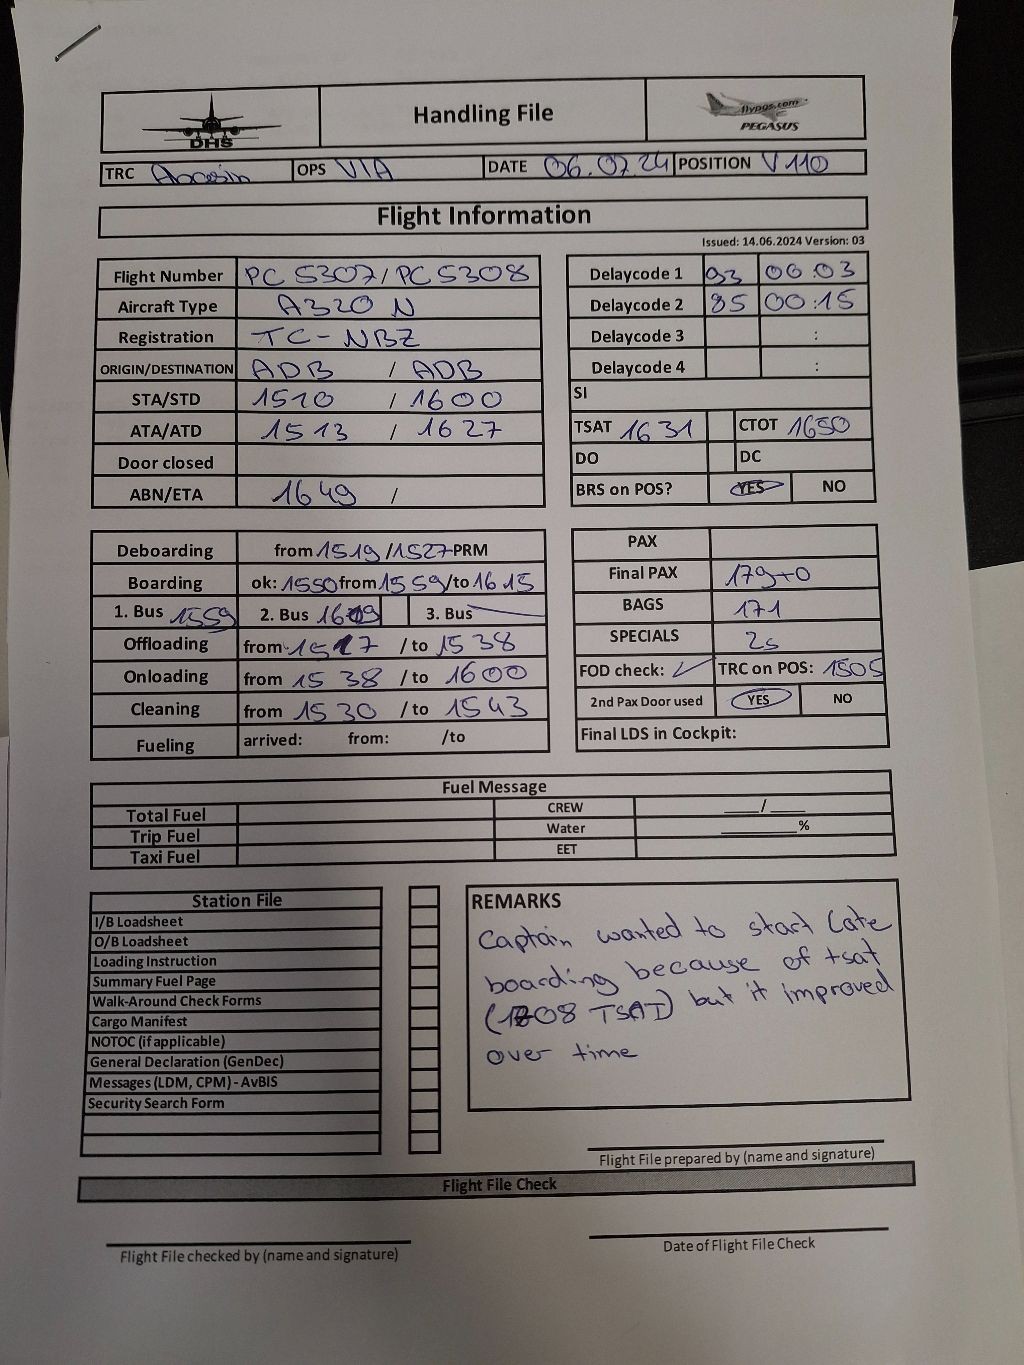 DHS
Handling File
flypgs.com
PEGASUS
TRC OPS VIA DATE 06.07.24 POSITION V110
Flight Information
Issued: 14.06.2024 Version: 03
Flight Number PC 5307/PC5308
Aircraft Type A320 N
Registration TC-NBZ
ORIGIN/DESTINATION ADB / ADB
STA/STD 1510 / 1600
ATA/ATD 1513 / 1627
Door closed
ABN/ETA 1649 /
Delaycode 1 93 00:03
Delaycode 2 85 00:15
Delaycode 3 :
Delaycode 4 :
SI
TSAT 1631 CTOT 1650
DO DC
BRS on POS? YES NO
Deboarding from 1519 /1527 PRM
Boarding ok: 1550 from 1559 /to 1615
1. Bus 1559 2. Bus 1609 3. Bus
Offloading from 1517 / to 1538
Onloading from 1538 / to 1600
Cleaning from 1530 / to 1543
Fueling arrived: from: /to
PAX
Final PAX 179+0
BAGS 171
SPECIALS 2s
FOD check: ✓ TRC on POS: 1505
2nd Pax Door used YES NO
Final LDS in Cockpit:
Fuel Message
Total Fuel CREW ____/____
Trip Fuel Water ________%
Taxi Fuel EET
Station File
I/B Loadsheet
O/B Loadsheet
Loading Instruction
Summary Fuel Page
Walk-Around Check Forms
Cargo Manifest
NOTOC (if applicable)
General Declaration (GenDec)
Messages (LDM, CPM) - AvBIS
Security Search Form
REMARKS
Captain wanted to start late
boarding because of tsat
(1708 TSAT) but it improved
over time
Flight File prepared by (name and signature)
Flight File Check
Flight File checked by (name and signature)
Date of Flight File Check